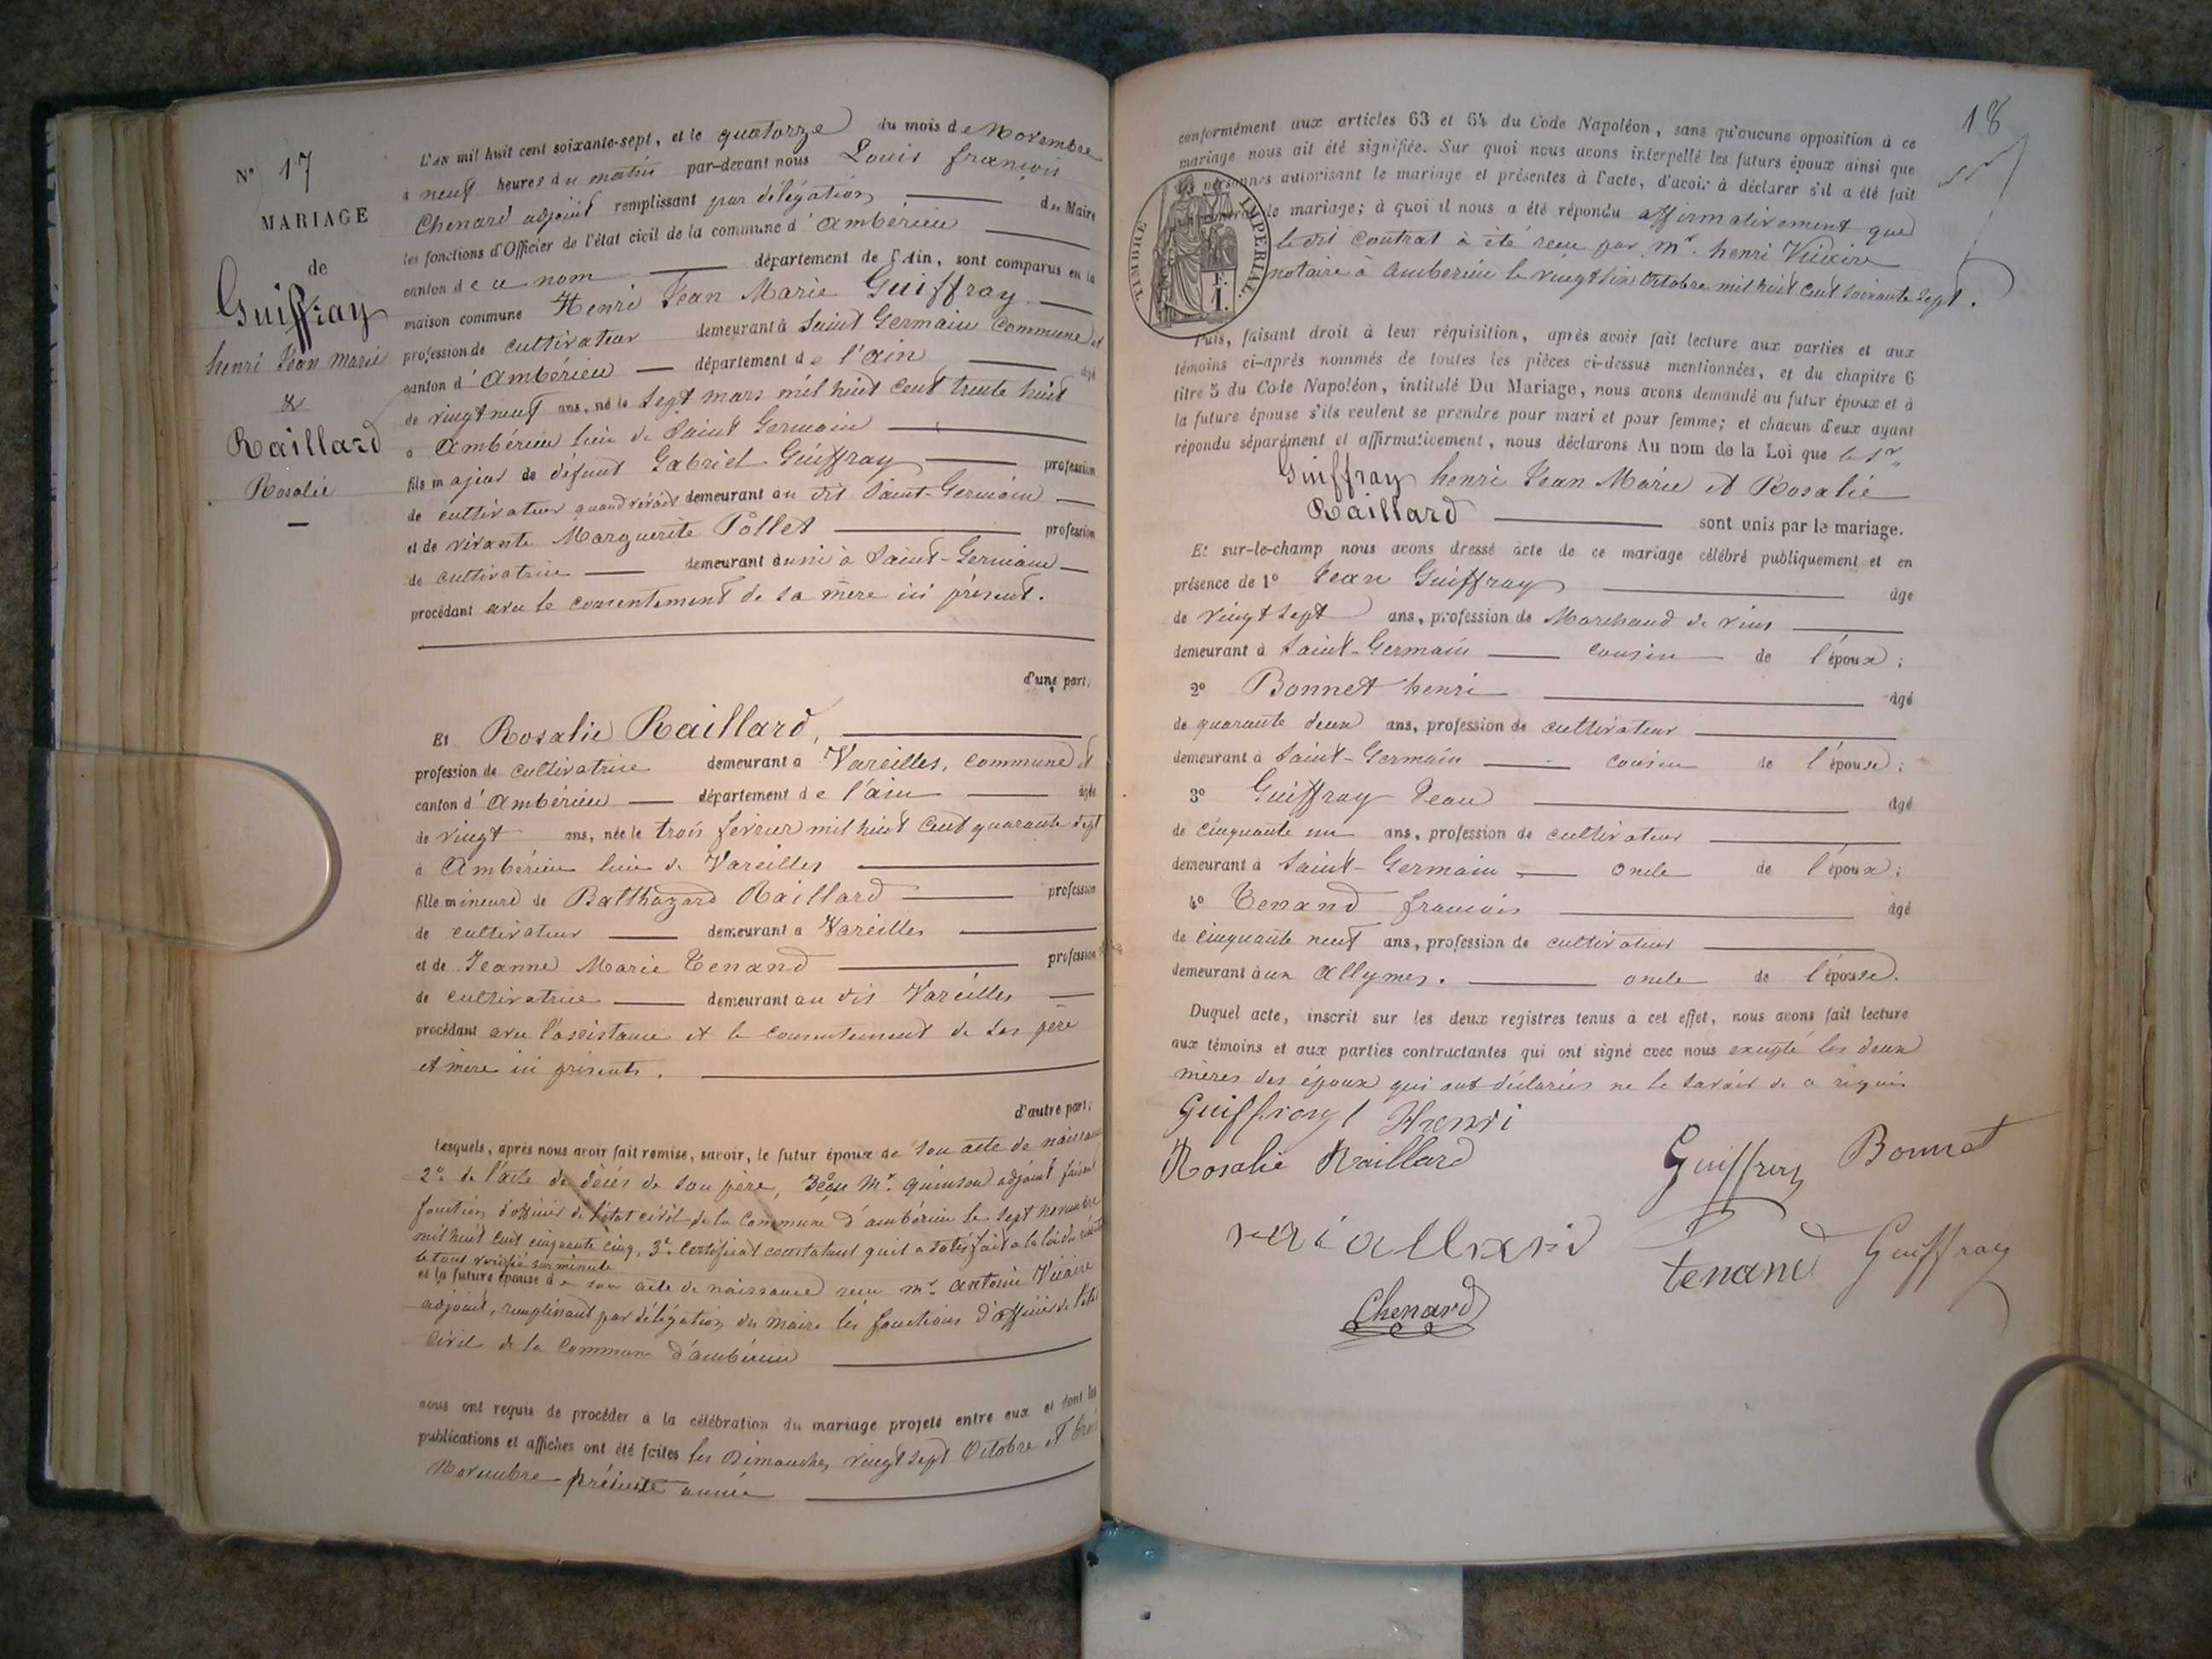 N° 17
MARIAGE
de
Guiffray
henri Jean Marie
&
Raillard
Rosalie
L'an mil huit cent soixante-sept, et le quatorze du mois de Novembre
à neuf heures du matin par-devant nous Louis françois
Chenard adjoint remplissant par délégation du Maire
les fonctions d'Officier de l'état civil de la commune d'Ambérieu
canton de ce nom département de l'Ain, sont comparus en la
maison commune Henri Jean Marie Guiffray
profession de cultivateur demeurant à Saint Germain commune et
canton d'Ambérieu département de l'ain âgé
de vingt neuf ans, né le sept mars mil huit cent trente huit
à Ambérieu lieu de Saint Germain
fils majeur de défunt Gabriel Guiffray profession
de cultivateur quand vivait demeurant au dit Saint-Germain
et de vivante Marguerite Pollet profession
de cultivatrice demeurant aussi à Saint-Germain
procédant avec le consentement de sa mère ici présent.
d'une part,
Et Rosalie Raillard,
profession de cultivatrice demeurant à Vareilles, commune et
canton d'Ambérieu département de l'ain âgée
de vingt ans, née le trois février mil huit cent quarante sept
à Ambérieu lieu de Vareilles
fille mineure de Balthazard Raillard profession
de cultivateur demeurant à Vareilles
et de Jeanne Marie Tenand profession
de cultivatrice demeurant au dit Vareilles
procédant avec l'assistance et le consentement de ses père
et mère ici présents.
d'autre part;
Lesquels, après nous avoir fait remise, savoir, le futur époux de son acte de naissance
2° de l'acte de décès de son père, reçu Mr. quinson adjoint faisant
fonction d'officier de l'état civil de la commune d'ambérieu le sept novembre
mil huit cent cinquante cinq, 3° certificat constatant qu'il a satisfait à la loi du
le tout vérifié sur minute
et la future épouse de son acte de naissance reçu mr. Antoine Vicaire
adjoint, remplissant par délégation du maire les fonctions d'officier de l'état
civil de la commune d'ambérieu
nous ont requis de procéder à la célébration du mariage projeté entre eux et dont les
publications et affiches ont été faites les Dimanches vingt sept Octobre et trois
Novembre présente année
18
conformément aux articles 63 et 64 du Code Napoléon, sans qu'aucune opposition à ce
mariage nous ait été signifiée. Sur quoi nous avons interpellé les futurs époux ainsi que
personnes autorisant le mariage et présentes à l'acte, d'avoir à déclarer s'il a été fait
contrat de mariage; à quoi il nous a été répondu affirmativement que
le dit contrat à été reçu par Mr. henri Vicaire
notaire à Ambérieu le vingt six Octobre mil huit cent soixante sept.
TIMBRE IMPERIAL
F.
1.
Puis, faisant droit à leur réquisition, après avoir fait lecture aux parties et aux
témoins ci-après nommés de toutes les pièces ci-dessus mentionnées, et du chapitre 6
titre 5 du Code Napoléon, intitulé Du Mariage, nous avons demandé au futur époux et à
la future épouse s'ils veulent se prendre pour mari et pour femme; et chacun d'eux ayant
répondu séparément et affirmativement, nous déclarons Au nom de la Loi que le Sr.
Guiffray henri Jean Marie et Rosalie
Raillard sont unis par le mariage.
Et sur-le-champ nous avons dressé acte de ce mariage célébré publiquement et en
présence de 1° Jean Guiffray âgé
de vingt sept ans, profession de Marchand de vins
demeurant à Saint-Germain cousin de l'époux;
2° Bonnet henri âgé
de quarante deux ans, profession de cultivateur
demeurant à Saint-Germain cousin de l'épouse;
3° Guiffray Jean âgé
de cinquante un ans, profession de cultivateur
demeurant à Saint-Germain oncle de l'époux;
4° Tenand françois âgé
de cinquante neuf ans, profession de cultivateur
demeurant aux Allymes. oncle de l'épouse.
Duquel acte, inscrit sur les deux registres tenus à cet effet, nous avons fait lecture
aux témoins et aux parties contractantes qui ont signé avec nous excepté les deux
mères des époux qui ont déclarées ne le savoir de ce requis
Guiffray Henri
Rosalie Raillard
Guiffray Bonnet
raiallard
tenand Guiffray
Chenard